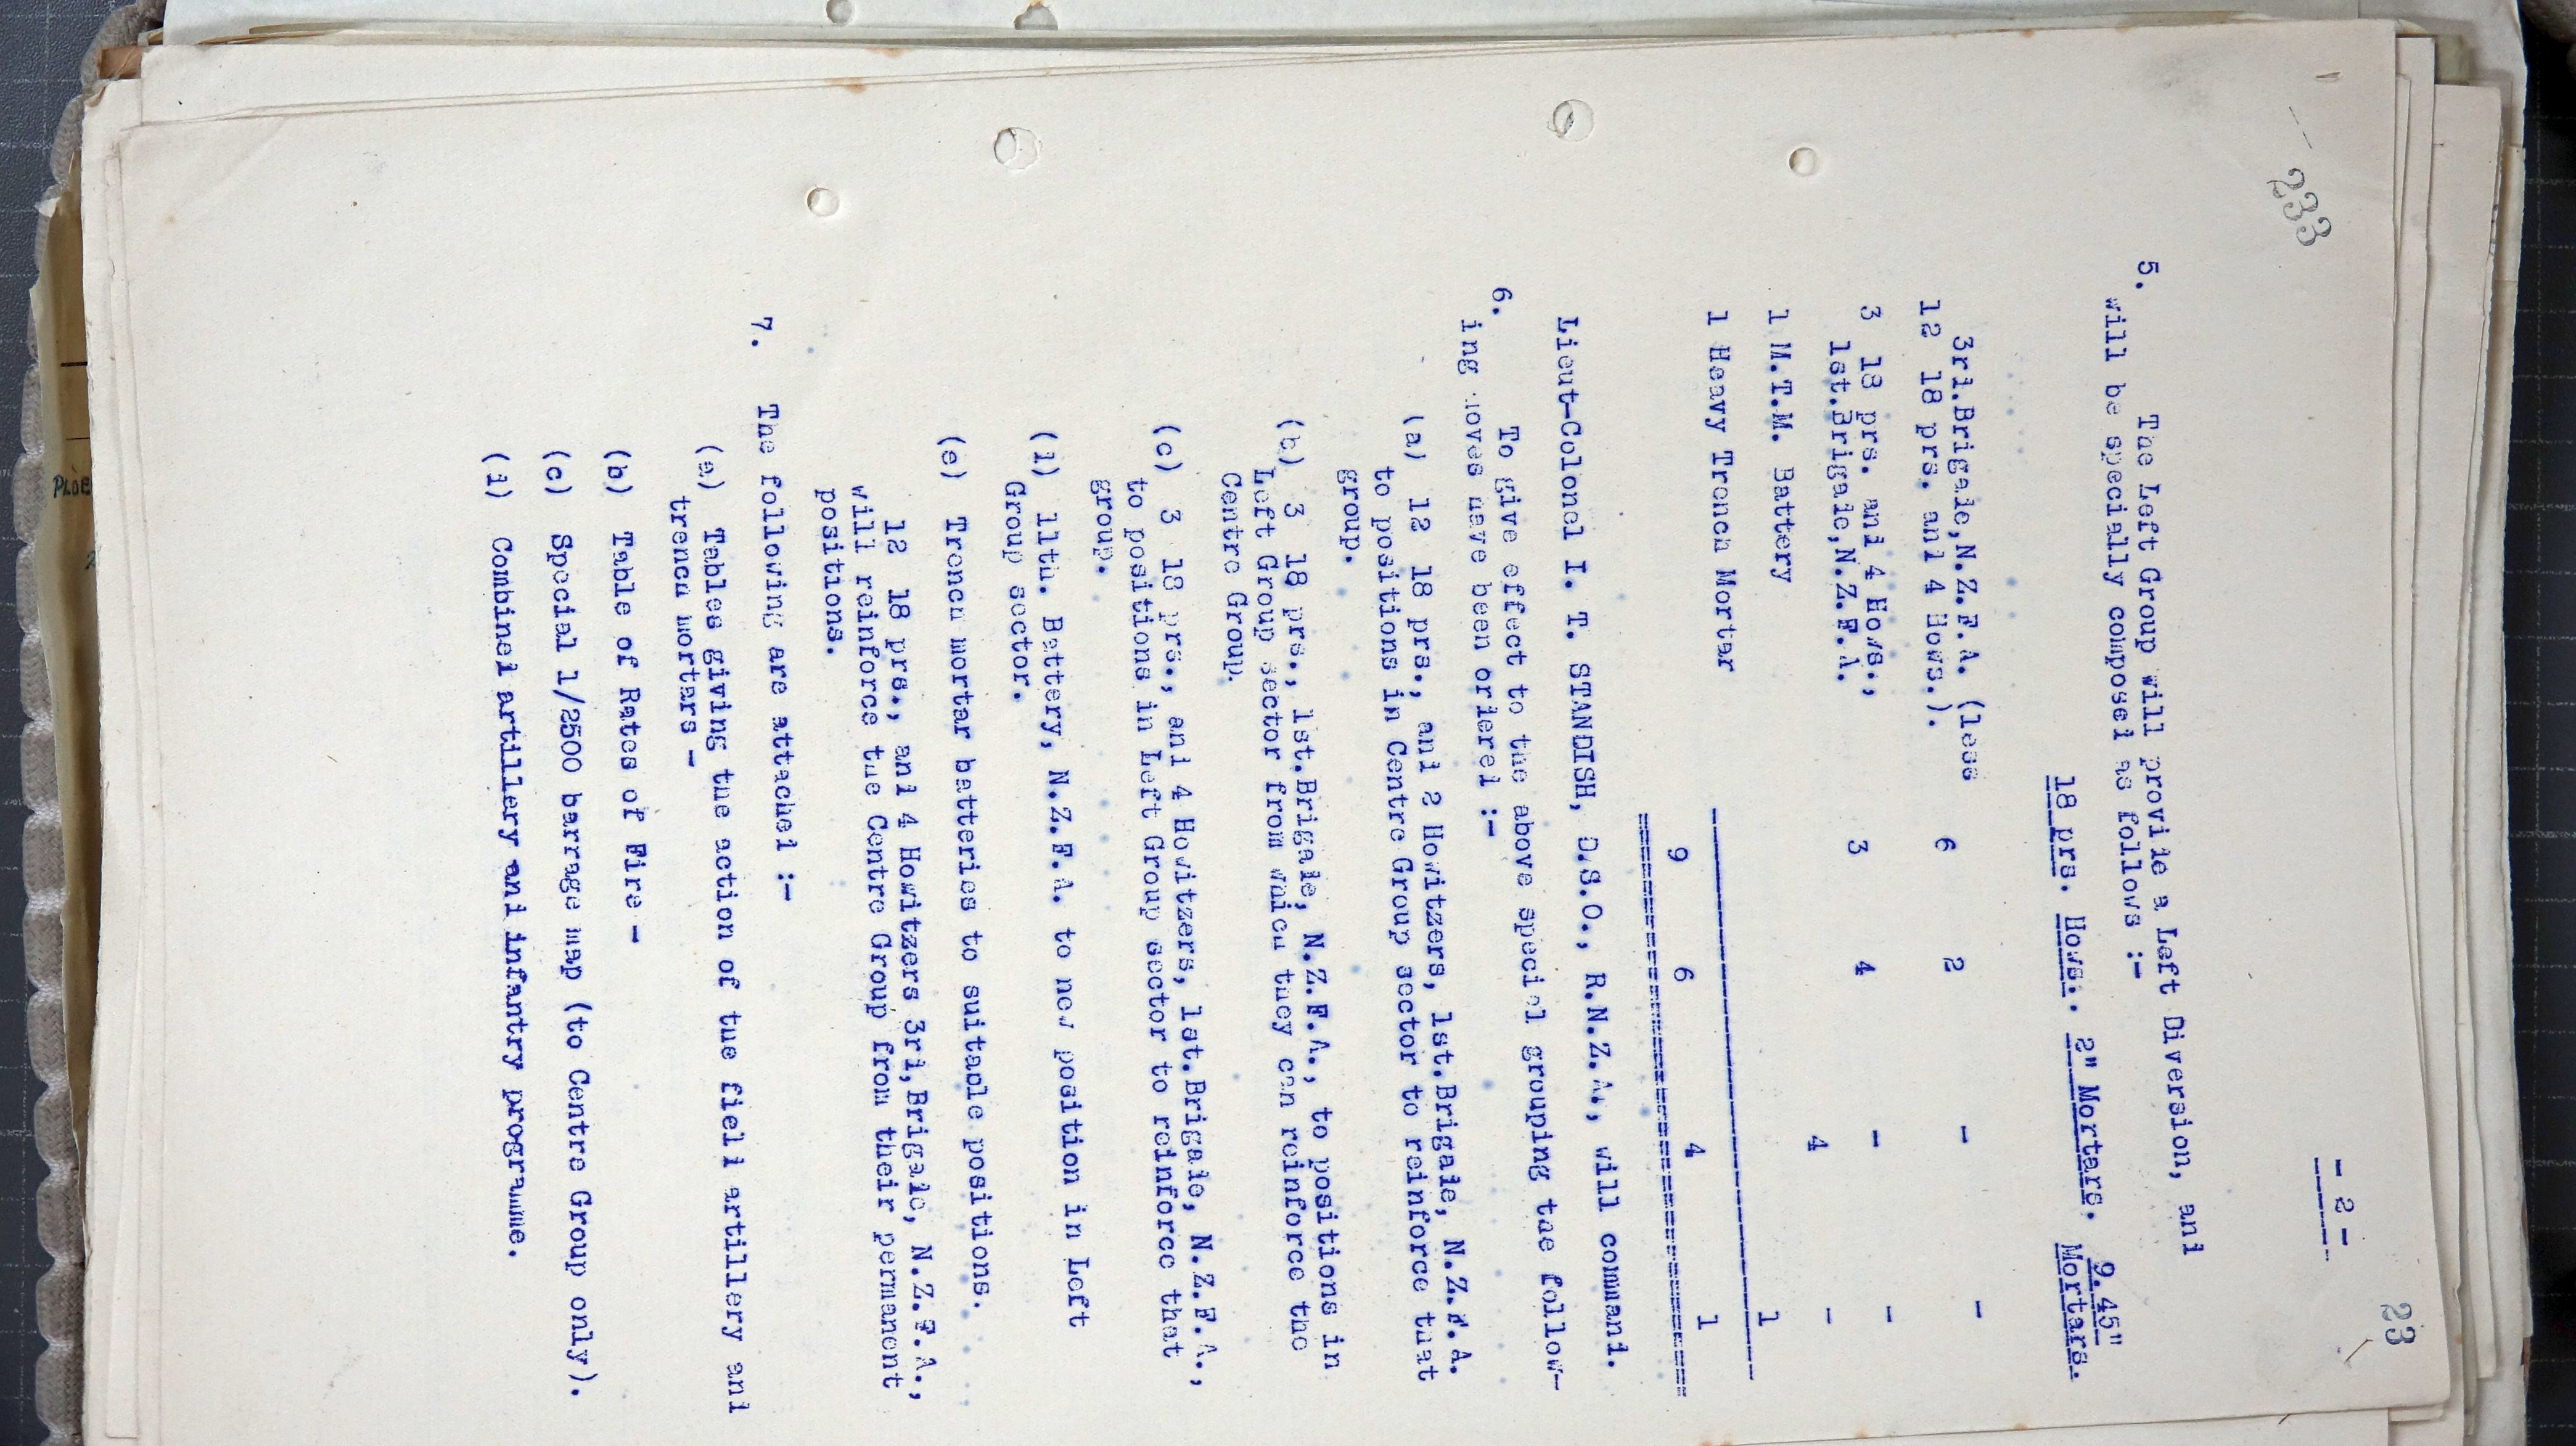 233
23
- 2 -
5. The Left Group will provide a Left Diversion, and
will be specially composed as follows :-
18 prs. Hows. 2" Mortars. 9.45"
Mortars.
3rd.Brigade,N.Z.F.A. (less
12 18 prs. and 4 Hows.). 6 2 - -
3 18 prs. and 4 Hows.,
1st.Brigade,N.Z.F.A. 3 4 - -
1 M.T.M. Battery 4 -
1 Heavy Trench Mortar 1
9 6 4 1
Lieut-Colonel I. T. STANDISH, D.S.O., R.N.Z.A., will command.
6. To give effect to the above special grouping the follow-
ing moves have been ordered :-
(a) 12 18 prs., and 2 Howitzers, 1st.Brigade, N.Z.F.A.
to positions in Centre Group sector to reinforce that
group.
(b) 3 18 prs., 1st.Brigade, N.Z.F.A., to positions in
Left Group sector from which they can reinforce the
Centre Group.
(c) 3 18 prs., and 4 Howitzers, 1st.Brigade, N.Z.F.A.,
to positions in Left Group sector to reinforce that
group.
(d) 11th. Battery, N.Z.F.A. to new position in Left
Group sector.
(e) Trench mortar batteries to suitable positions.
12 18 prs., and 4 Howitzers 3rd,Brigade, N.Z.F.A.,
will reinforce the Centre Group from their permanent
positions.
7. The following are attached :-
(a) Tables giving the action of the field artillery and
trench mortars -
(b) Table of Rates of Fire -
(c) Special 1/2500 barrage map (to Centre Group only).
(d) Combined artillery and infantry programme.